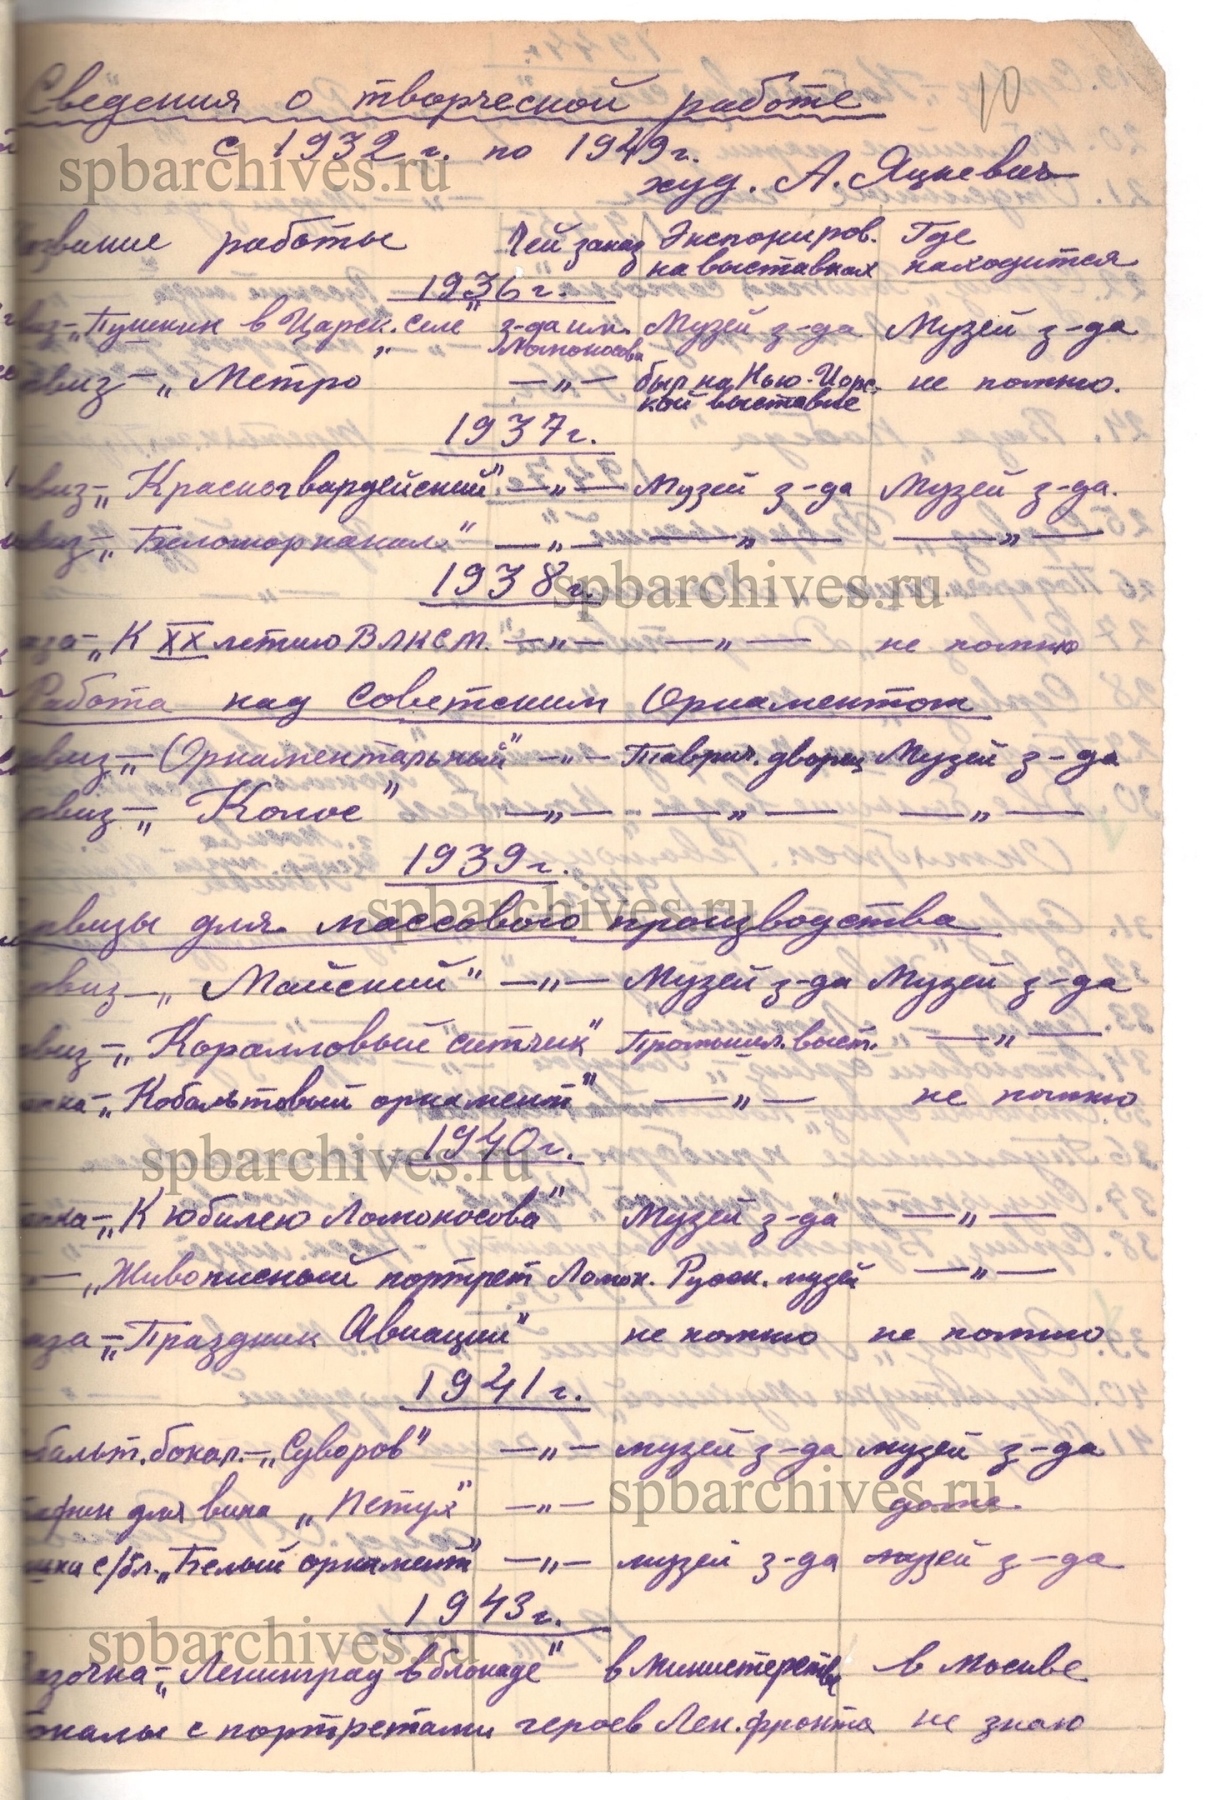 10
Сведения о творческой работе
с 1932 г. по 1949 г.
худ. А. Яцкевич
звание работы Чей заказ Экспониров. на выставках Где находится
1936 г.
виз-„Пушкин в Царск. селе" з-да им. Ломоносова Музей з-да Музей з-да
виз-„Метро" —„— был на Нью-Йорк-ской выставке не помню.
1937 г.
виз-„Красногвардейский" —„— Музей з-да Музей з-да.
виз-„Беломорканал" —„— —„— —„—
1938 г.
аза-„К XX летию ВЛКСМ." —„— —„— не помню
Работа над Советским Орнаментом
виз-„Орнаментальный" —„— Таврич. дворец Музей з-да
виз-„Колос" —„— —„— —„—
1939 г.
рвизы для массового производства
рвиз-„Майский" —„— Музей з-да Музей з-да
виз-„Коралловый ситчик" Промышл. выст. —„—
шка-„Кобальтовый орнамент" —„— не помню
1940 г.
шка-„К юбилею Ломоносова" Музей з-да —„—
—„Живописный портрет Ломон. Русск. музей —„—
аза-„Праздник Авиации" не помню не помню
1941 г.
бальт. бокал.-„Суворов" —„— музей з-да музей з-да
афин для вина „Петух" —„— дома.
шка с/бл. „Белый орнамент" —„— музей з-да музей з-да
1943 г.
вазочка-„Ленинград в блокаде" в министерстве в Москве
бокалы с портретами героев Лен. фронта не знаю
spbarchives.ru
spbarchives.ru
spbarchives.ru
spbarchives.ru
spbarchives.ru
spbarchives.ru